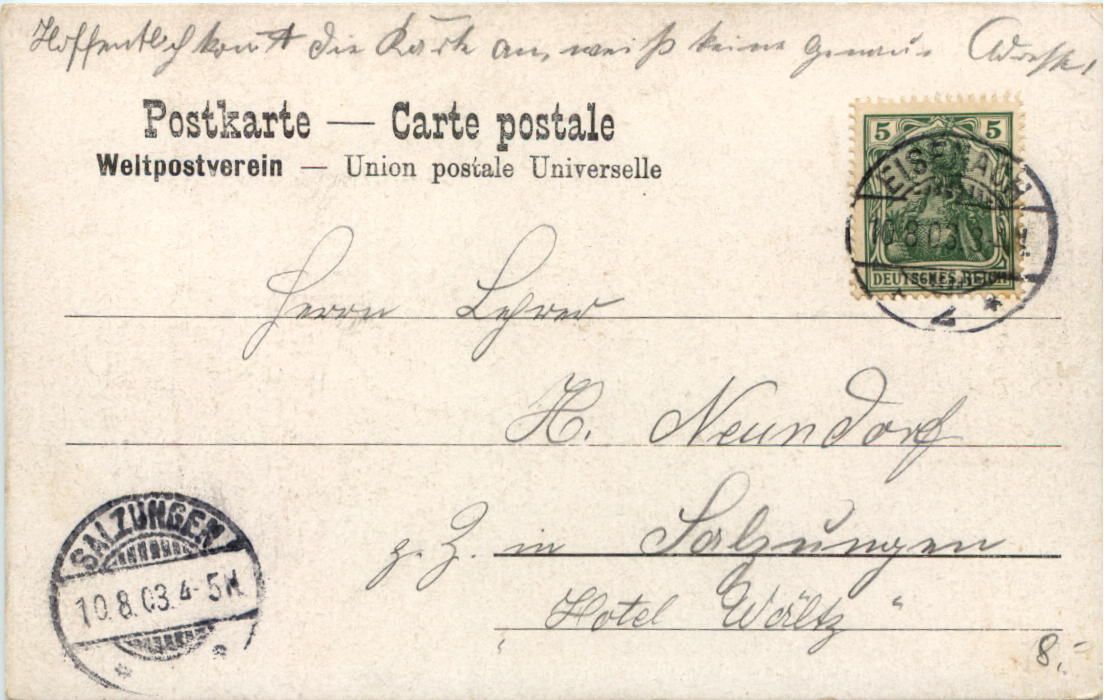 Hoffentlich kommt die Karte an, weiß keine genaue Adresse!
Postkarte — Carte postale
Weltpostverein — Union postale Universelle
5 5
EISENACH
10.8.03.
DEUTSCHES REICH
2 *
Herrn Lehrer
H. Neundorf
z. Z. in Salzungen
„Hotel Wältz“
SALZUNGEN
10.8.03.4-5N.
* *
8.-